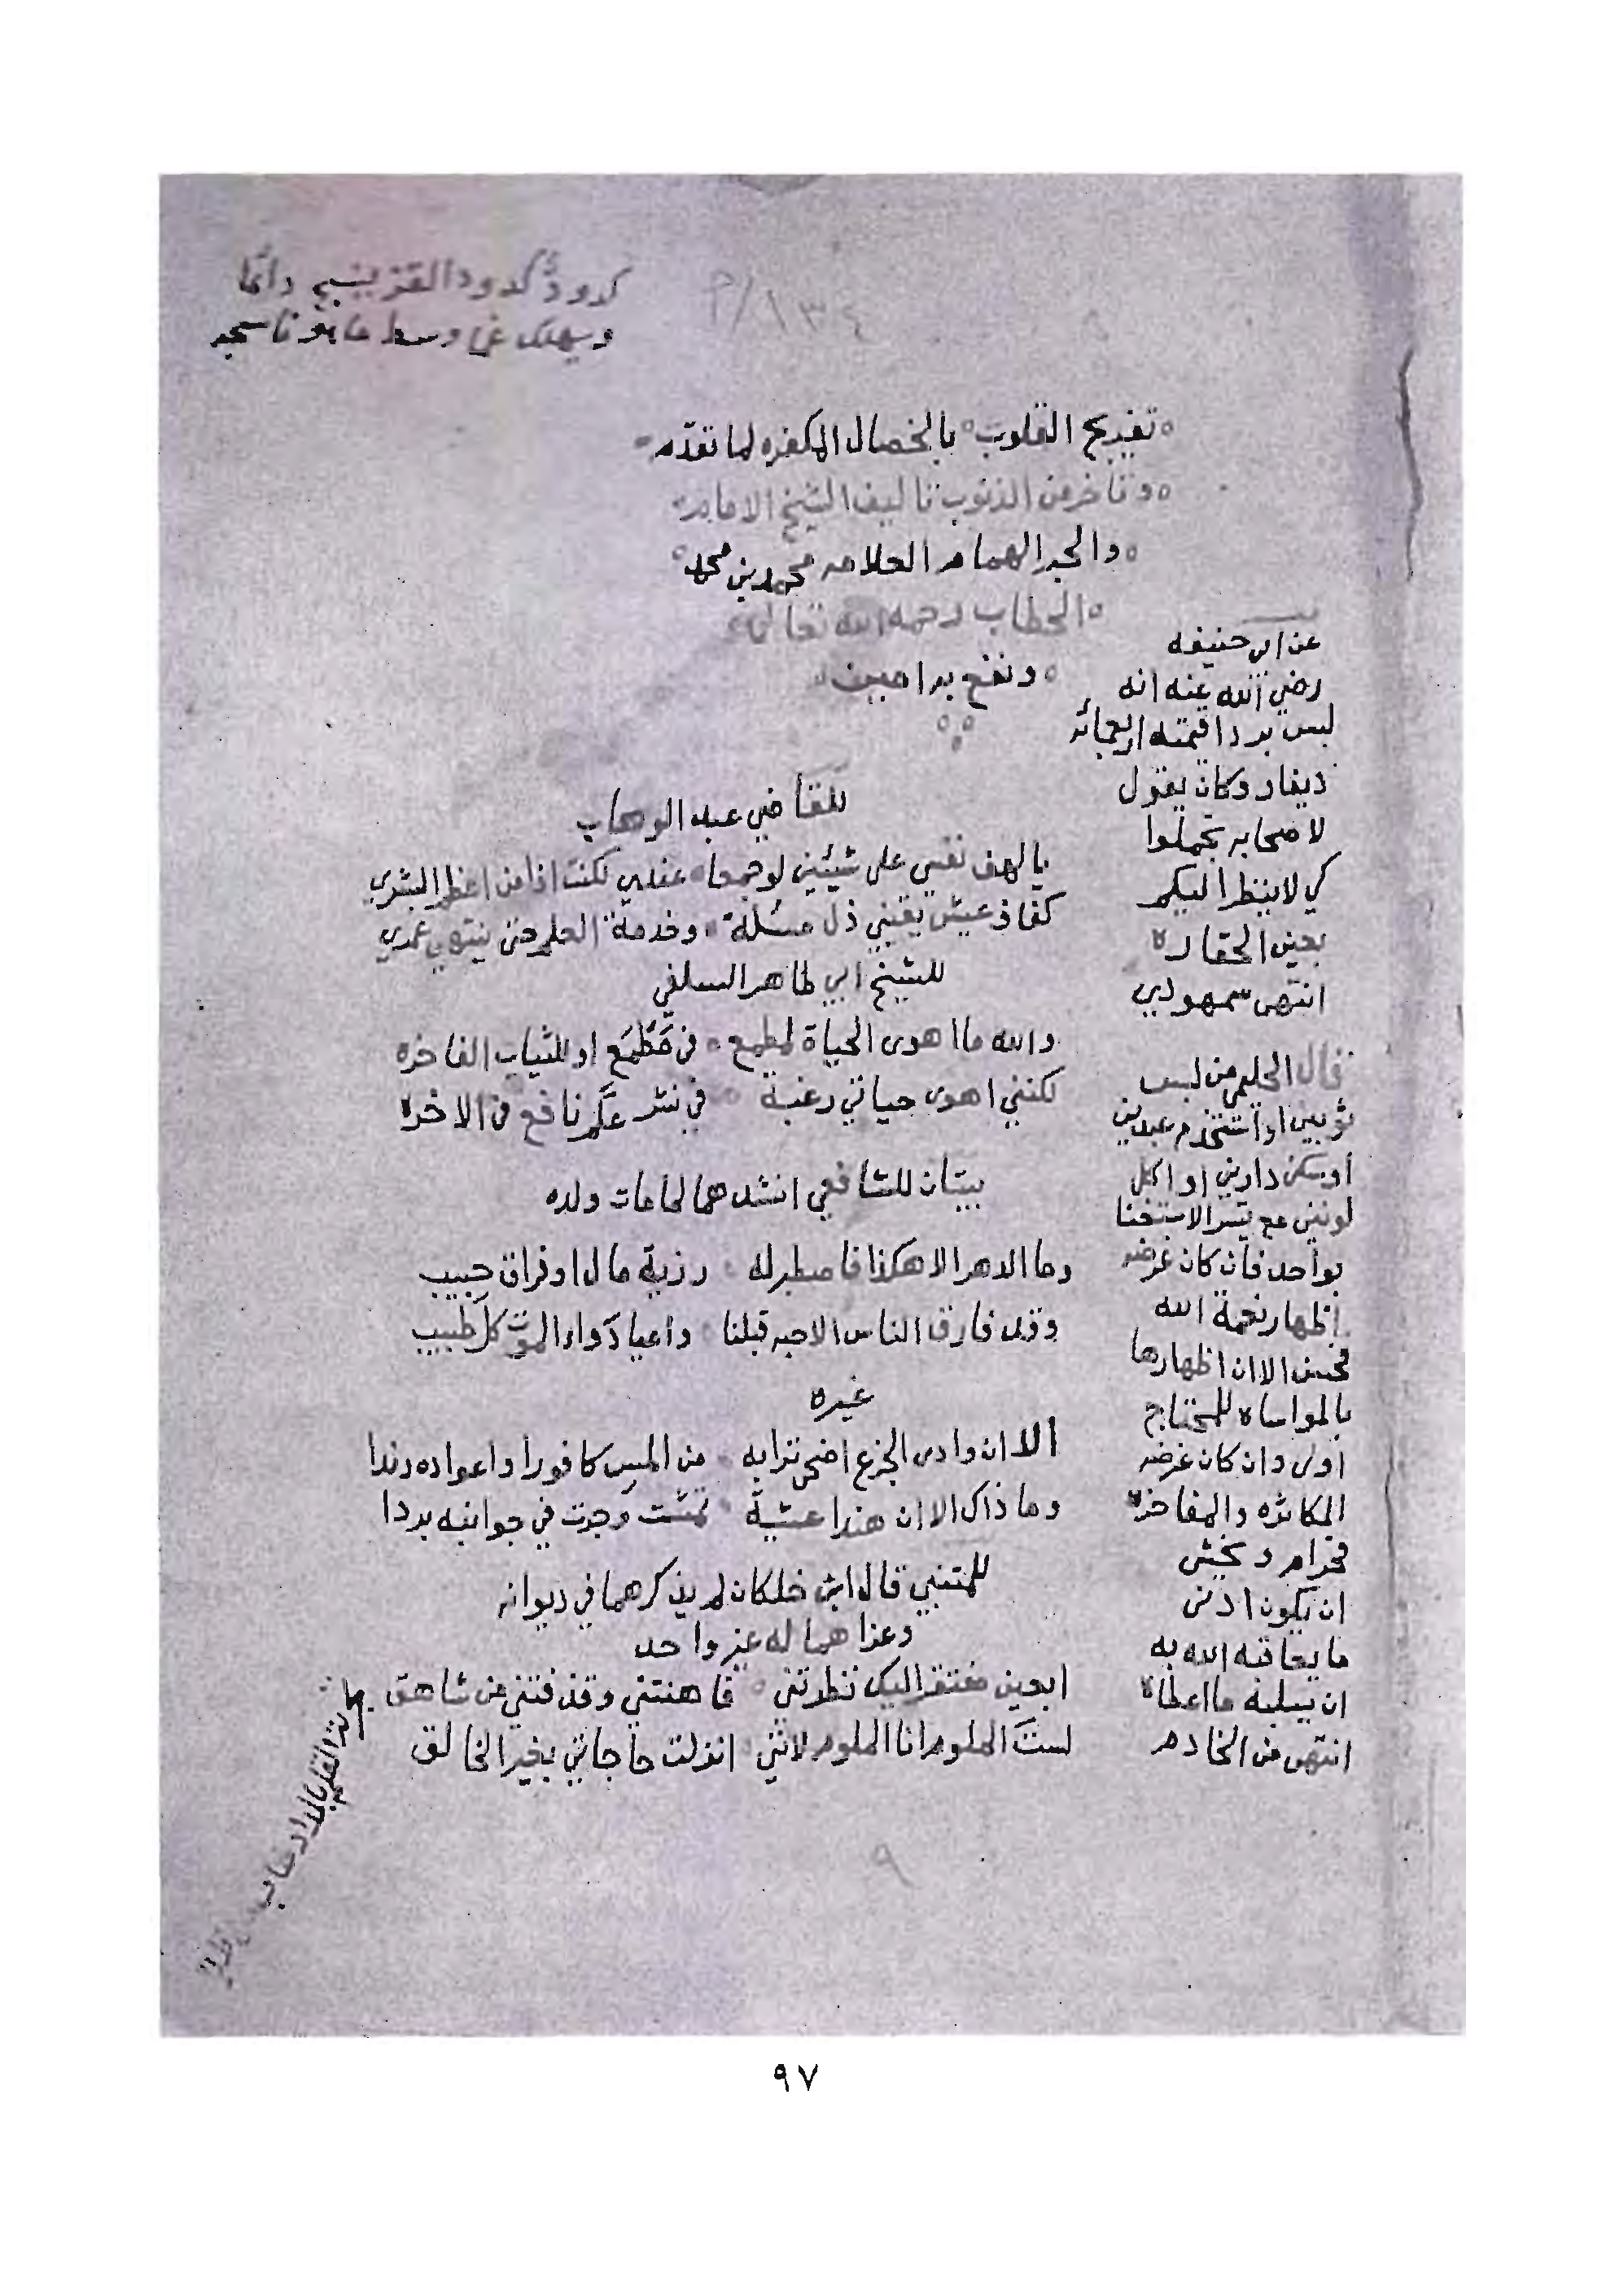 كدود كدود القز ينسج دائما
ويهلك غما وسط ما هو ناسجه
٩/٨٣٤
تفريج القلوب بالخصال المكفره لما تقدم
وتاخر من الذنوب تاليف الشيخ الامام
والحبر الهمام العلامه محمد بن محمد
الحطاب رحمه الله تعالى
ونفع به امين
للقاضي عبد الوهاب
يا لهف نفسي على شيئين لو جمعا عندي لكنت اذا من اعظم البشر
كفاف عيش يقيني ذل مسئلة وخدمة العلم حتى ينتهي عمري
للشيخ ابي طاهر السلفي
والله ما اهوى الحياة لمطمع في مطمع او للثياب الفاخره
لكنني اهوى حياتي رغبة في نشر علم نافع في الاخره
بيتان للشافعي انشدهما لما مات ولده
وما الدهر الا هكذا فاصطبر له رزية مال او فراق حبيب
وقد فارق الناس الاحبه قبلنا واعيا دواء الموت كل طبيب
غيره
الا ان وادى الجزع اضحى ترابه من المسك كافورا واعواده رندا
وما ذاك الا ان هندا عشية تمشت وجرت في جوانبه بردا
للمتنبي قال ابن خلكان لم يذكرهما في ديوانه
وعزاهما له غير واحد
ابعين مفتقر اليك نظرتني فاهنتني وقذفتني من شاهق
لست الملوم انا الملوم لانني انزلت حاجاتي بغير الخالق
عن ابي حنيفه
رضي الله عنه انه
لبس بردا قيمته اربعمائه
دينار وكان يقول
لاصحابه تجملوا
كي لا ينظر اليكم
بعين الحقاره
انتهى سمهودي
قال الحليمي من لبس
ثوبين او استخدم عبدين
او سكن دارين او اكل
لونين مع تيسر الاستغنا
بواحد فان كان غرضه
اظهار نعمة الله
فحسن الا ان اظهارها
بالمواساه للمحتاج
اولى وان كان غرضه
المكاثره والمفاخره
فحرام ويخشى
ان يكون ادنى
ما يعاقبه الله به
ان يسلبه ما اعطاه
انتهى من الخادم
٩
٩٧